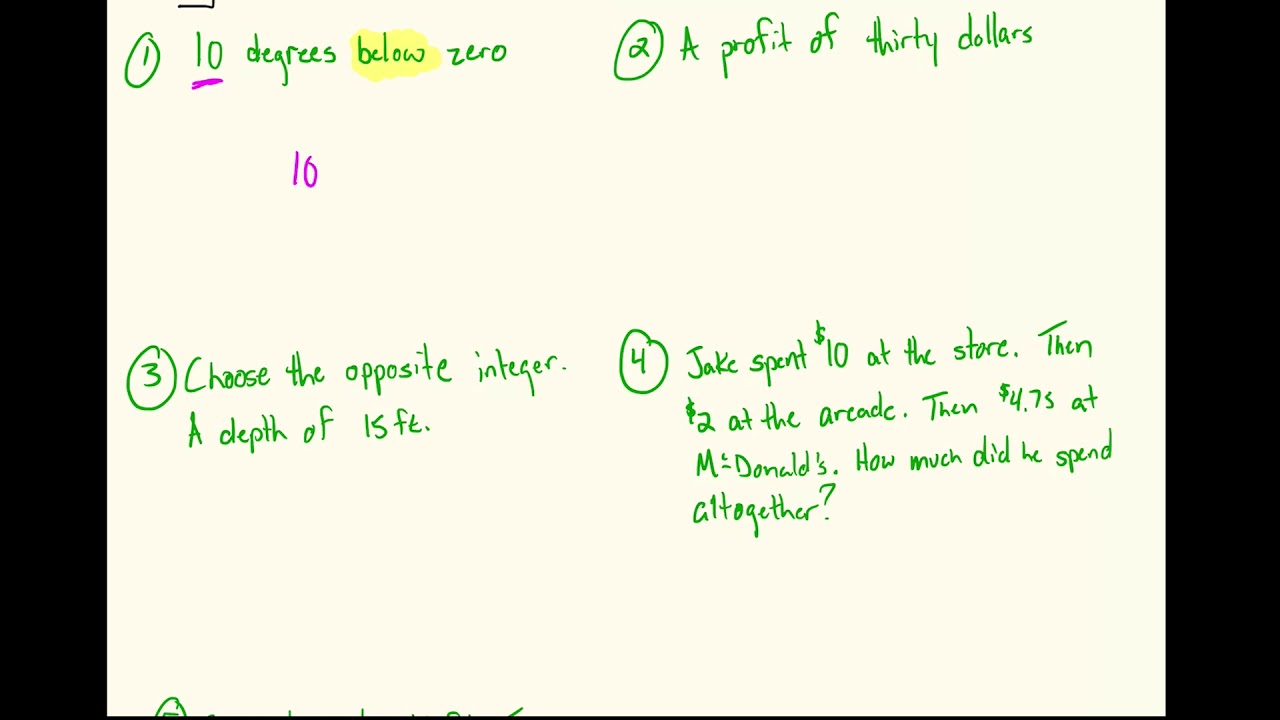 ① 10 degrees below zero
10
② A profit of thirty dollars
③ Choose the opposite integer.
A depth of 15 ft.
④ Jake spent $10 at the store. Then
$2 at the arcade. Then $4.75 at
McDonald's. How much did he spend
altogether?